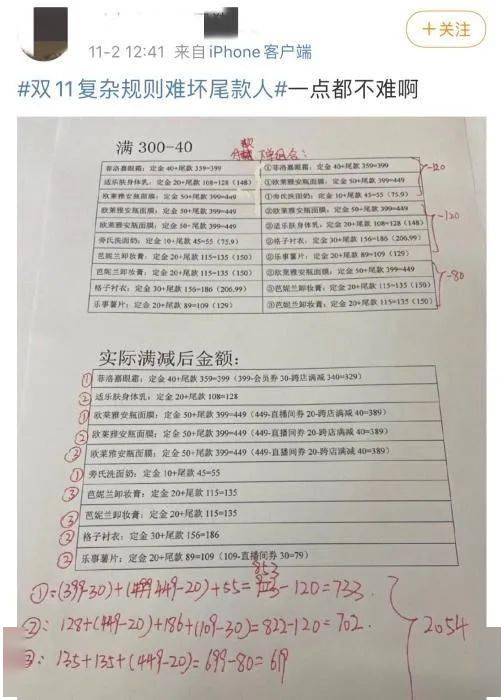 +关注
11-2 12:41 来自 iPhone客户端
#双11复杂规则难坏尾款人#一点都不难啊
满 300-40
下单组合：
菲洛嘉眼霜：定金 40+尾款 359=399
①菲洛嘉眼霜：定金 40+尾款 359=399
适乐肤身体乳：定金 20+尾款 108=128（148）
①欧莱雅安瓶面膜：定金 50+尾款 399=449
欧莱雅安瓶面膜：定金 50+尾款 399=449
①旁氏洗面奶：定金 10+尾款 45=55（75.9）
欧莱雅安瓶面膜：定金 50+尾款 399=449
②欧莱雅安瓶面膜：定金 50+尾款 399=449
欧莱雅安瓶面膜：定金 50+尾款 399=449
②适乐肤身体乳：定金 20+尾款 108=128（148）
旁氏洗面奶：定金 10+尾款 45=55（75.9）
②格子衬衣：定金 30+尾款 156=186（206.99）
芭妮兰卸妆膏：定金 20+尾款 115=135（150）
②乐事薯片：定金 20+尾款 89=109（129）
芭妮兰卸妆膏：定金 20+尾款 115=135（150）
③欧莱雅安瓶面膜：定金 50+尾款 399=449
格子衬衣：定金 30+尾款 156=186（206.99）
③芭妮兰卸妆膏：定金 20+尾款 115=135（150）
乐事薯片：定金 20+尾款 89=109（129）
③芭妮兰卸妆膏：定金 20+尾款 115=135（150）
-120
-120
-80
实际满减后金额：
① 菲洛嘉眼霜：定金 40+尾款 359=399（399-会员券 30-跨店满减 340=329）
② 适乐肤身体乳：定金 20+尾款 108=128
① 欧莱雅安瓶面膜：定金 50+尾款 399=449（449-直播间券 20-跨店满减 40=389）
② 欧莱雅安瓶面膜：定金 50+尾款 399=449（449-直播间券 20-跨店满减 40=389）
欧莱雅安瓶面膜：定金 50+尾款 399=449（449-直播间券 20-跨店满减 40=389）
① 旁氏洗面奶：定金 10+尾款 45=55
③ 芭妮兰卸妆膏：定金 20+尾款 115=135
③ 芭妮兰卸妆膏：定金 20+尾款 115=135
② 格子衬衣：定金 30+尾款 156=186
② 乐事薯片：定金 20+尾款 89=109（109-直播间券 30=79）
853
①=(399-30)+(449-20)+55=-120=733
②: 128+(449-20)+186+(109-30)=822-120=702
③: 135+135+(449-20)=699-80=619
2054